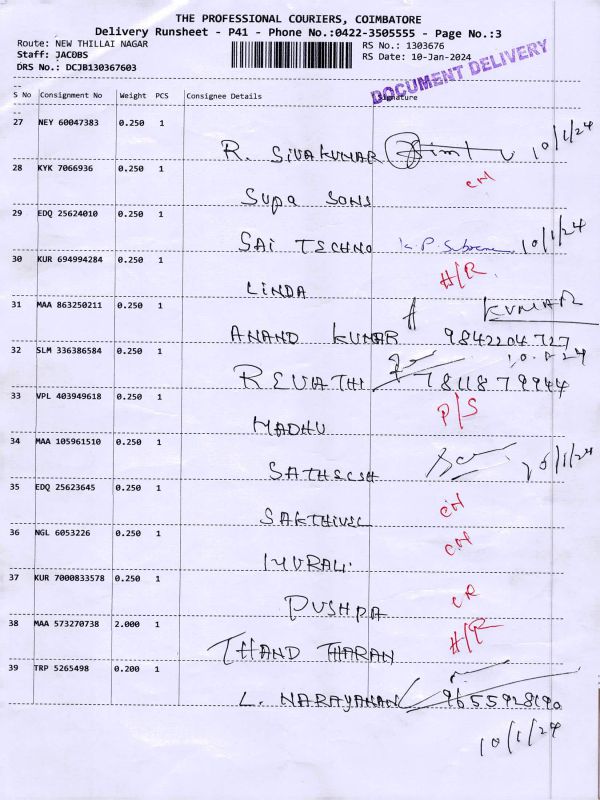 THE PROFESSIONAL COURIERS, COIMBATORE
Delivery Runsheet - P41 - Phone No.:0422-3505555 - Page No.:3
Route: NEW THILLAI NAGAR
RS No.: 1303676
Staff: JACOBS
RS Date: 10-Jan-2024
DRS No.: DCJB130367603
DOCUMENT DELIVERY
--
S No Consignment No Weight PCS Consignee Details Signature
--
27 NEY 60047383 0.250 1
R. SIVAKUMAR 10/1/24
28 KYK 7066936 0.250 1
Supa SONS
29 EDQ 25624010 0.250 1
SAI TECHNO K.P. 10/1/24
30 KUR 694994284 0.250 1
LINDA H/R
31 MAA 863250211 0.250 1
KUMAR
ANAND KUMAR 9842204727
32 SLM 336386584 0.250 1
REVATHI 7811879944
33 VPL 403949618 0.250 1
MADHU P/S
34 MAA 105961510 0.250 1
SATHEESH
35 EDQ 25623645 0.250 1
SAKTHIVEL
36 NGL 6053226 0.250 1
MURALI
37 KUR 7000833578 0.250 1
PUSHPA CR
38 MAA 573270738 2.000 1
THAND THARAN H/R
39 TRP 5265498 0.200 1
L. NARAYANAN 9655928190
10/1/24